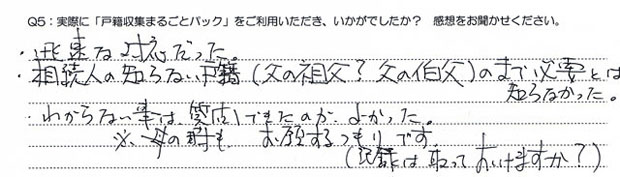 Q5：実際に「戸籍収集まるごとパック」をご利用いただき、いかがでしたか？　感想をお聞かせください。
・迅速な対応だった。
・相続人の知らない戸籍（父の祖父？父の伯父）のまで必要とは
知らなかった。
・わからない事は質問できたのが、よかった。
※、母の時も お願するつもりです。
（記録は取っておいけますか？）